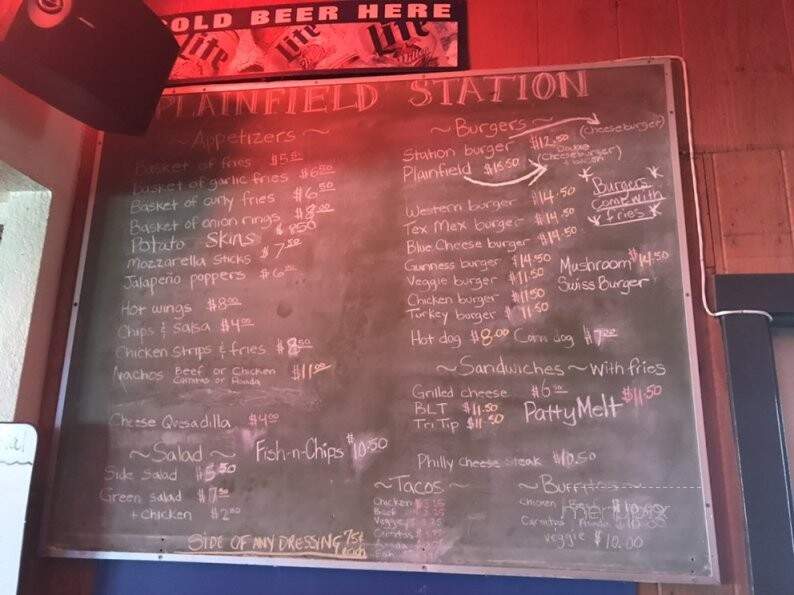 COLD BEER HERE
Lite Lite Lite
PLAINFIELD STATION
~Appetizers~
Basket of fries
Basket of garlic fries
Basket of curly fries $6.50
Basket of onion rings $8.00
Potato Skins $8.50
Mozzarella sticks $7.50
Jalapeño poppers
Hot wings $8.00
Chips & Salsa $4.00
Chicken Strips & fries $8.50
Nachos Beef or Chicken $11.00
Carnitas or Asada
Cheese Quesadilla $4.00
~Salad~
Side Salad $5.50
Green Salad
+ Chicken $2.00
Fish-n-Chips $10.50
SIDE OF ANY DRESSING 75¢ each
~Burgers~
Station burger $12.50 (Cheeseburger)
Plainfield $15.50 (Double Cheeseburger + bacon)
Western burger $14.50
Tex Mex burger $14.50
Blue Cheese burger $14.50
Guinness burger $14.50
Veggie burger $11.50
Chicken burger $11.50
Turkey burger $11.50
* Burgers *
Come with
* fries *
Mushroom $14.50
Swiss Burger
Hot dog $8.00 Corn dog
~Sandwiches~ With fries
Grilled cheese
BLT $11.50
Tri Tip $11.50
Patty Melt $11.50
Philly Cheese Steak $10.50
~Tacos~
Chicken
Beef
Veggie
Carnitas
Asada
Fish
~Burritos~
Chicken
Carnitas Asada
Veggie $10.00